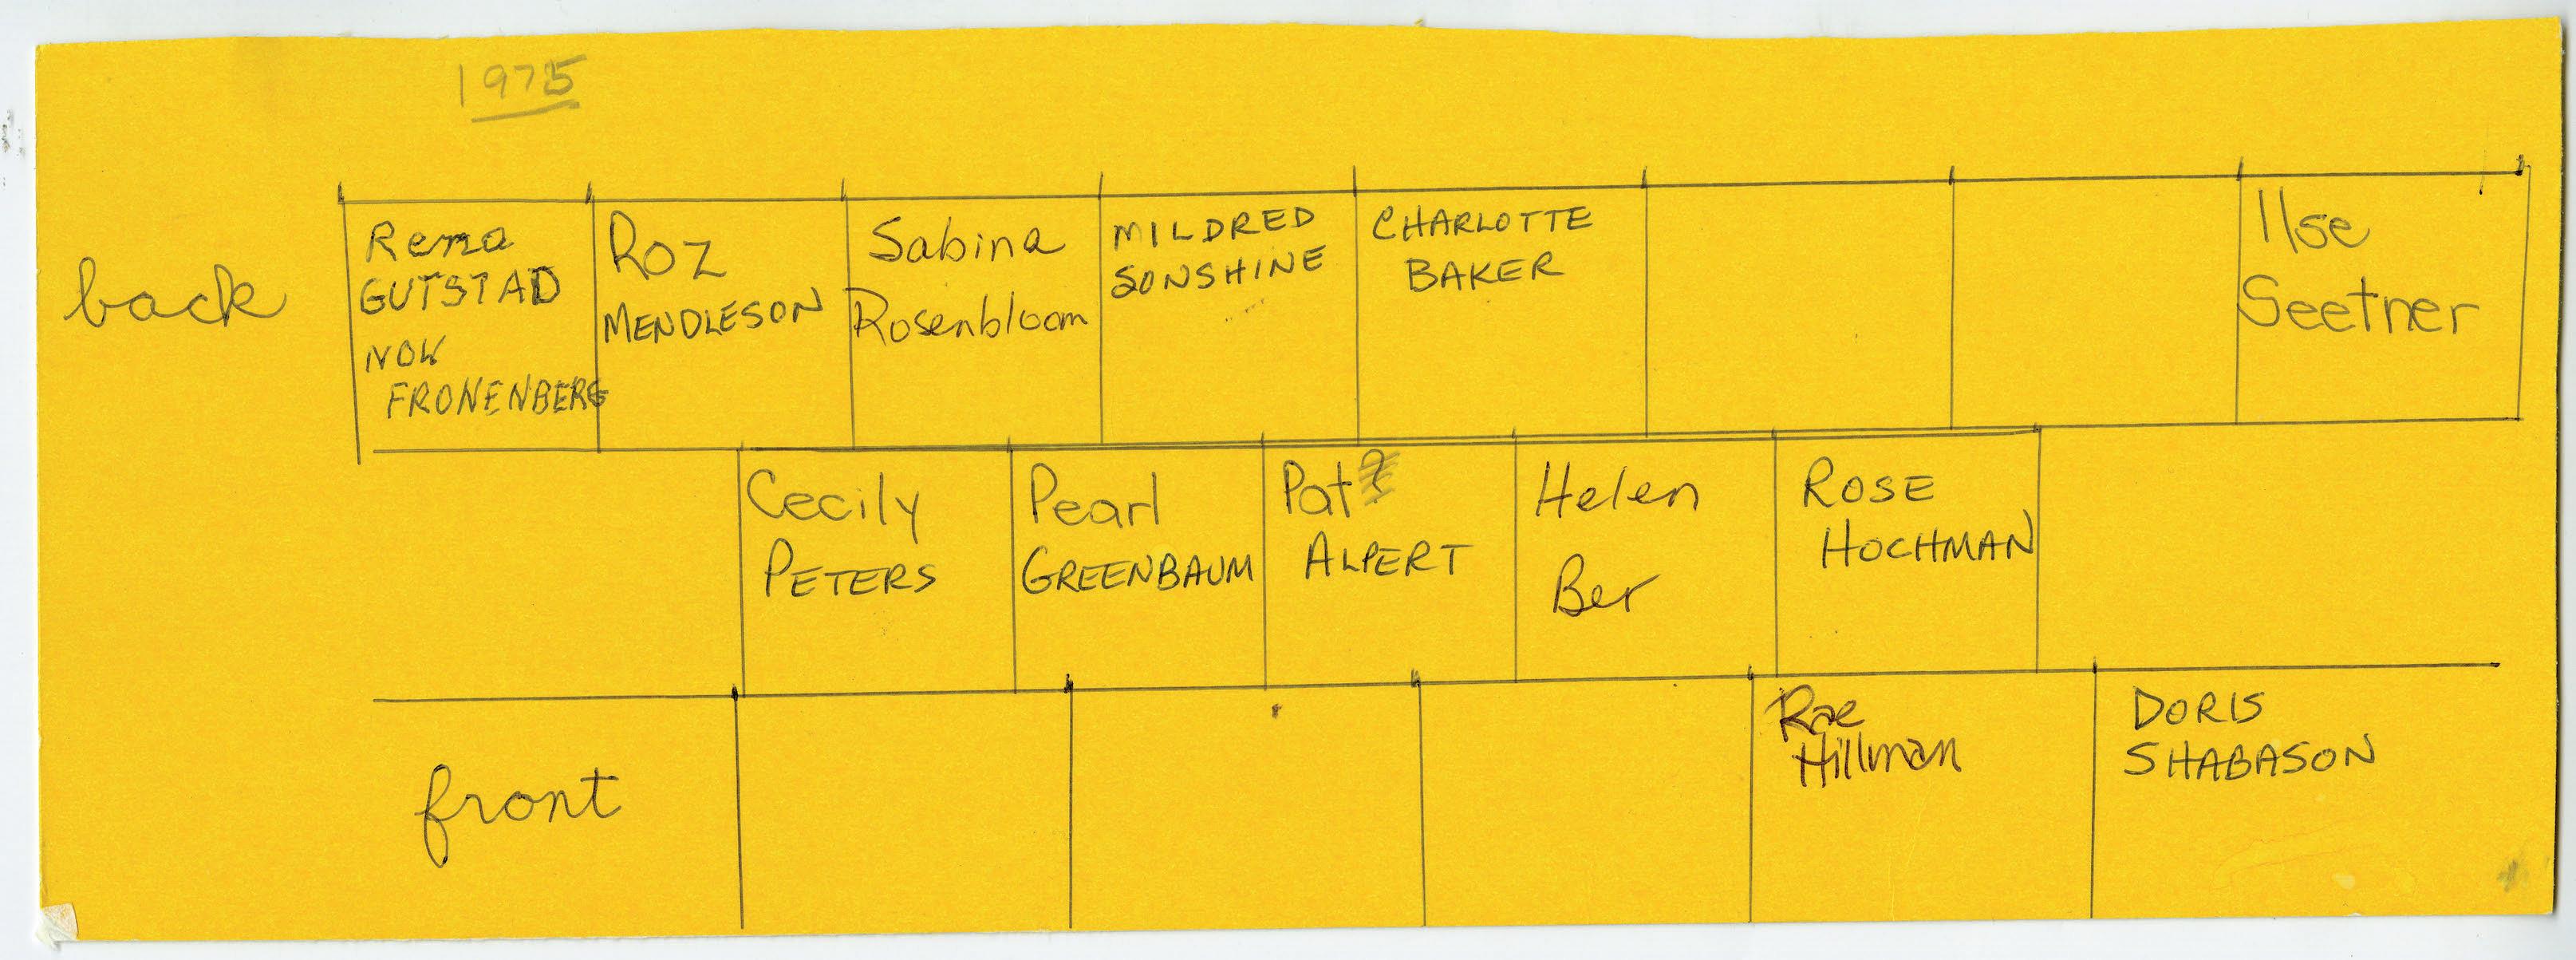 1975
back
Rema
GUTSTAD
NOW
FRONENBERG
Roz
MENDLESON
Sabina
Rosenbloom
MILDRED
SONSHINE
CHARLOTTE
BAKER
Ilse
Seetner
Cecily
PETERS
Pearl
GREENBAUM
Pat?
ALPERT
Helen
Ber
ROSE
HOCHMAN
front
Rae
Hillman
DORIS
SHABASON